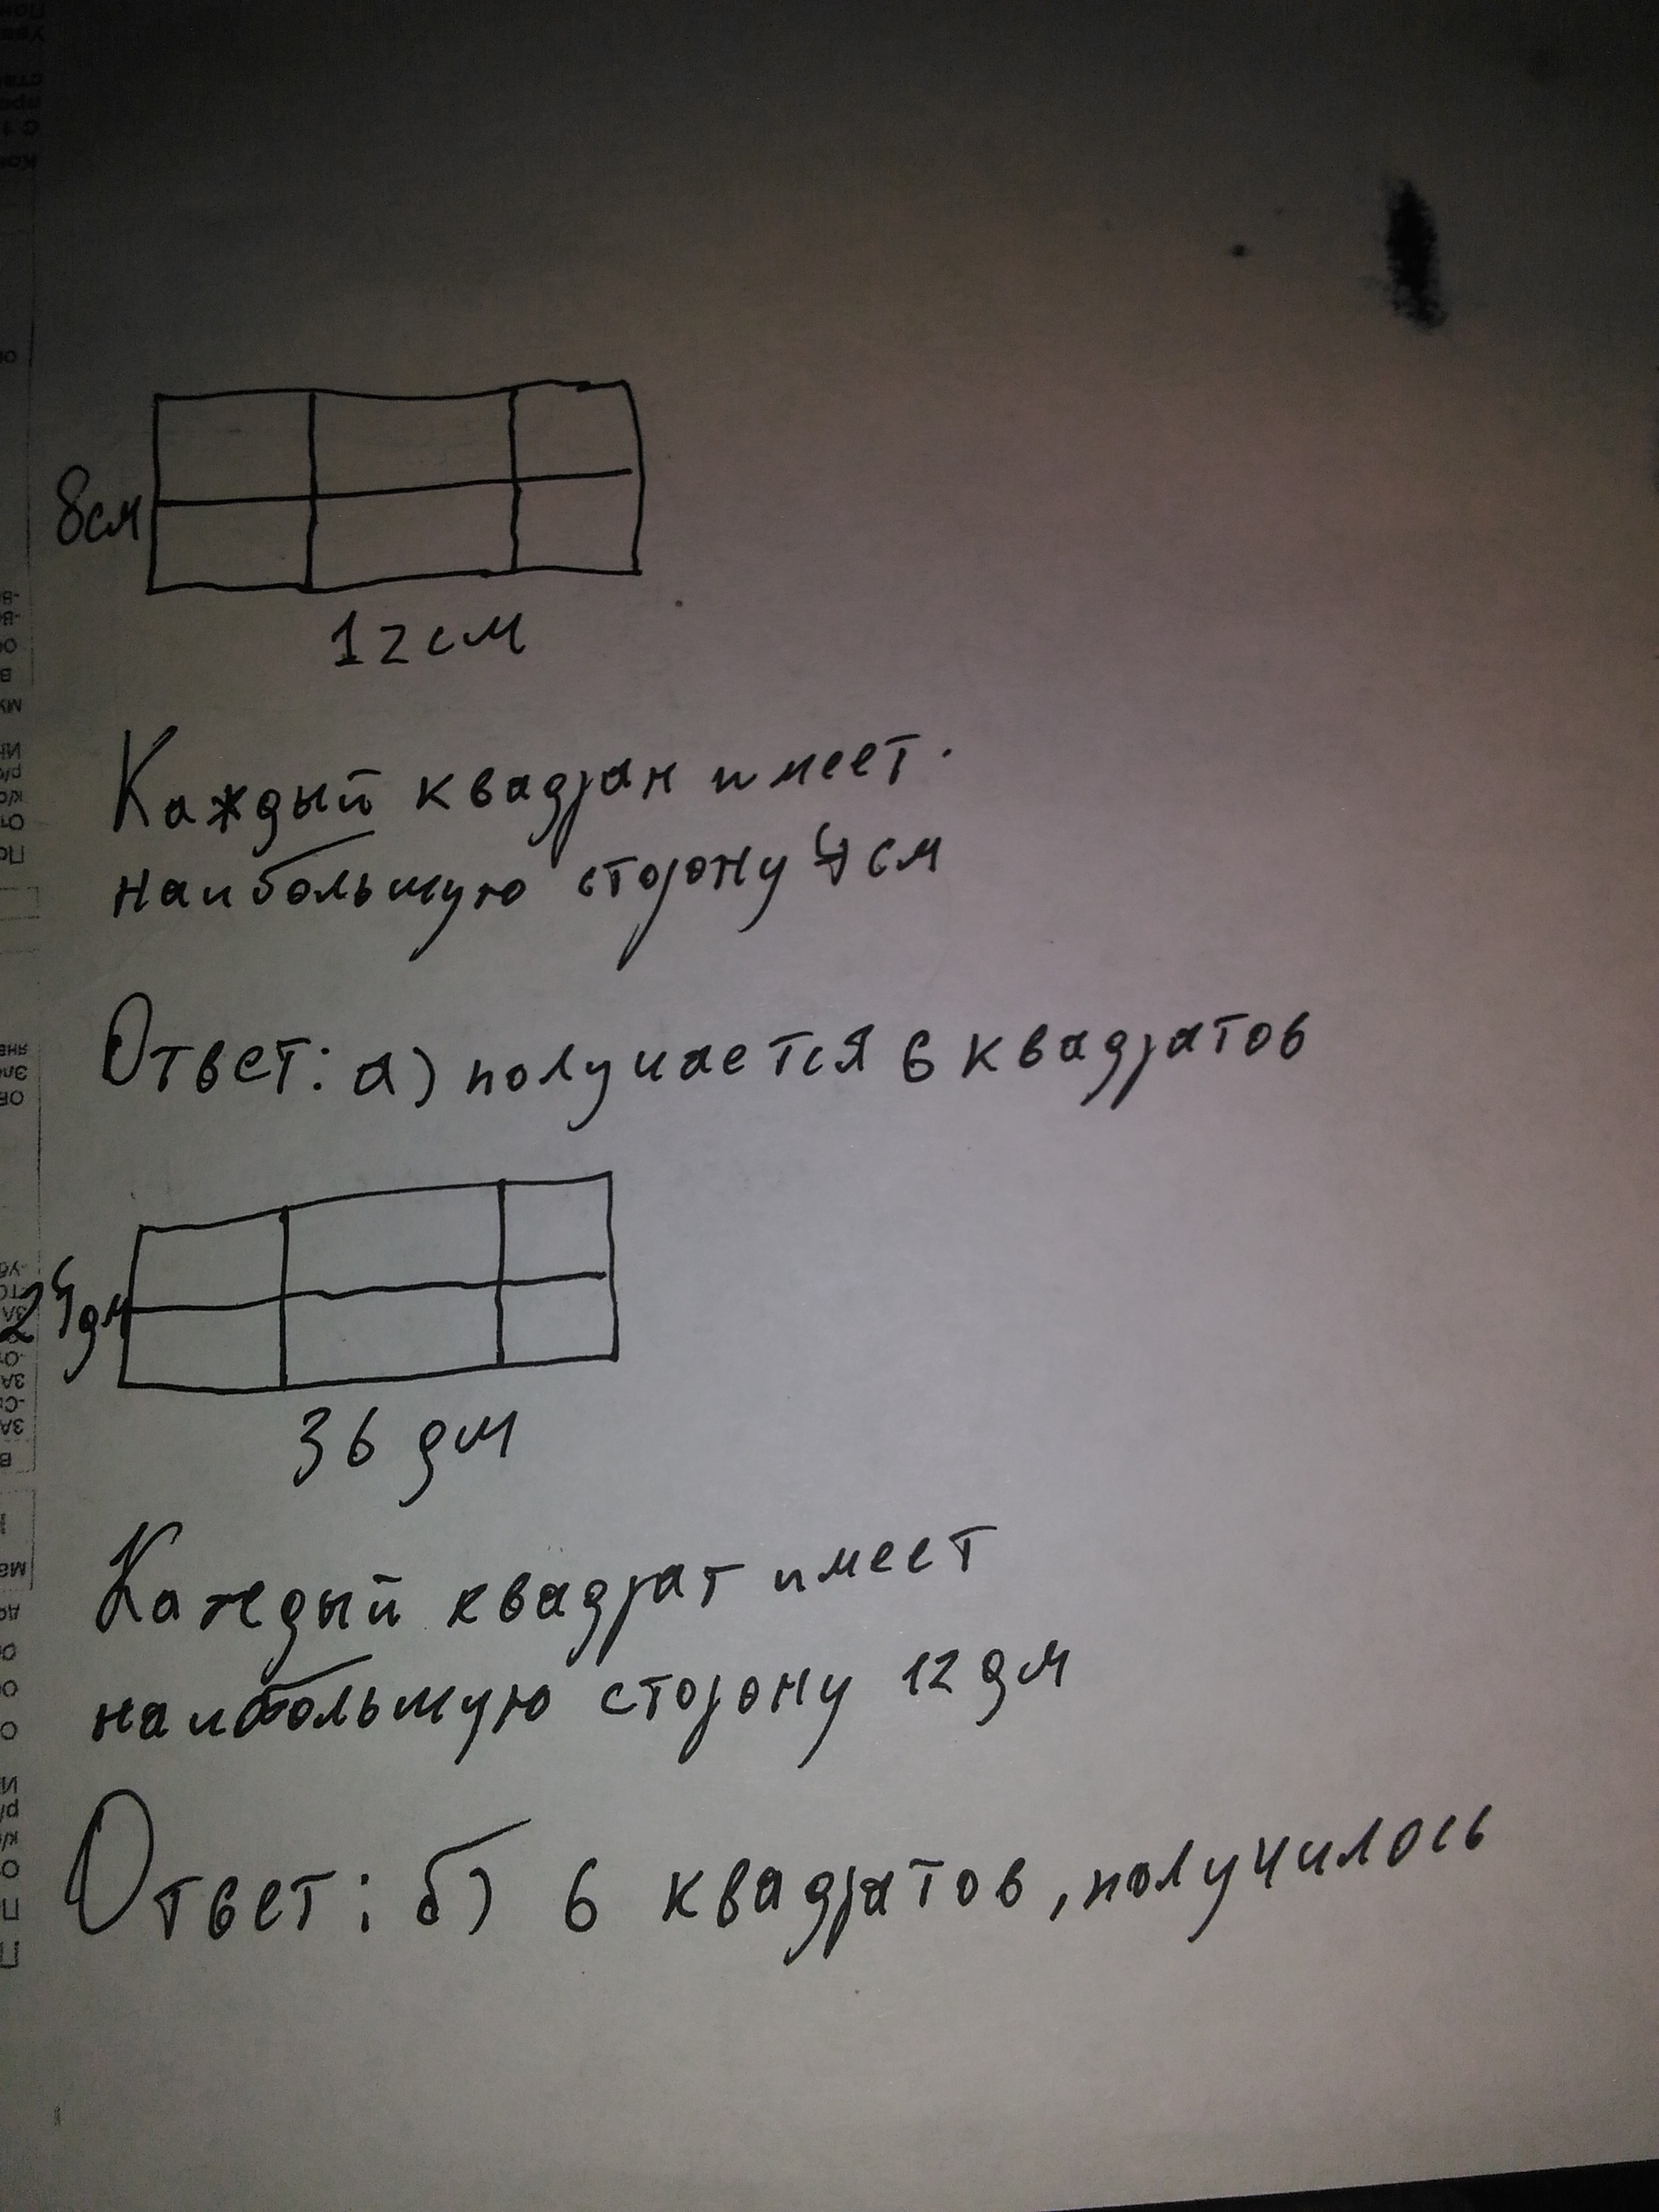 8см
12см
Каждый квадран имеет.
наибольшую сторону 4см
Ответ: а) получается 6 квадратов
24дм
36 дм
Каждый квадрат имеет
наибольшую сторону 12дм
Ответ: б) 6 квадратов, получилось